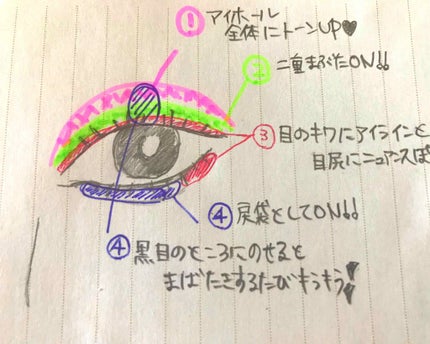 ① アイホール
全体にトーンUP♥
② 二重まぶたON!!
③ 目のキワにアイラインと
目尻にニュアンスぱ
④ 涙袋としてON!!
④ 黒目のところにのせると
まばたきするたびキラキラ!